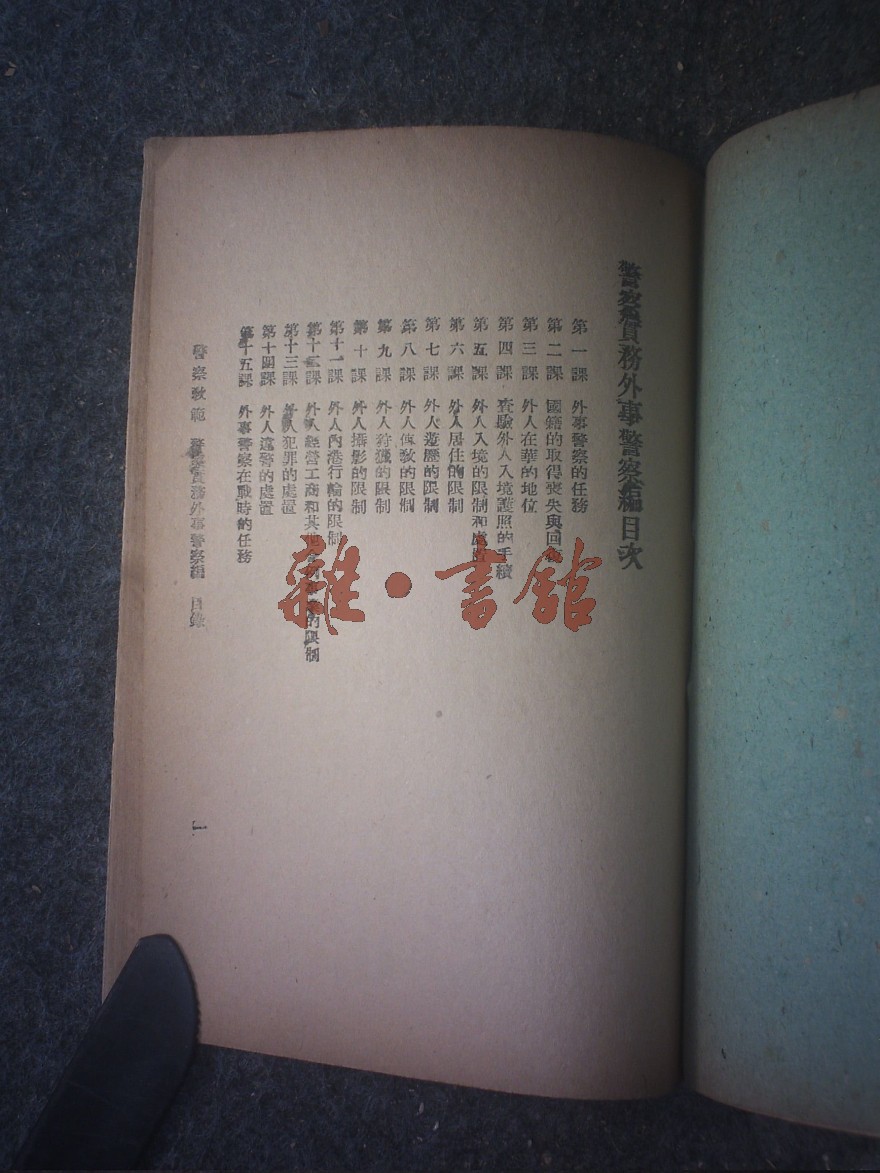 警察實務外事警察編目次
第一課 外事警察的任務
第二課 國籍的取得喪失與回復
第三課 外人在華的地位
第四課 查驗外人入境護照的手續
第五課 外人入境的限制和處置
第六課 外人居住的限制
第七課 外人遊歷的限制
第八課 外人傳教的限制
第九課 外人狩獵的限制
第十課 外人攝影的限制
第十一課 外人內港行輪的限制
第十二課 外人經營工商和其他的限制
第十三課 外人犯罪的處置
第十四課 外人違警的處置
第十五課 外事警察在戰時的任務
警察教範 警察實務外事警察編 目錄
一
雜·書館